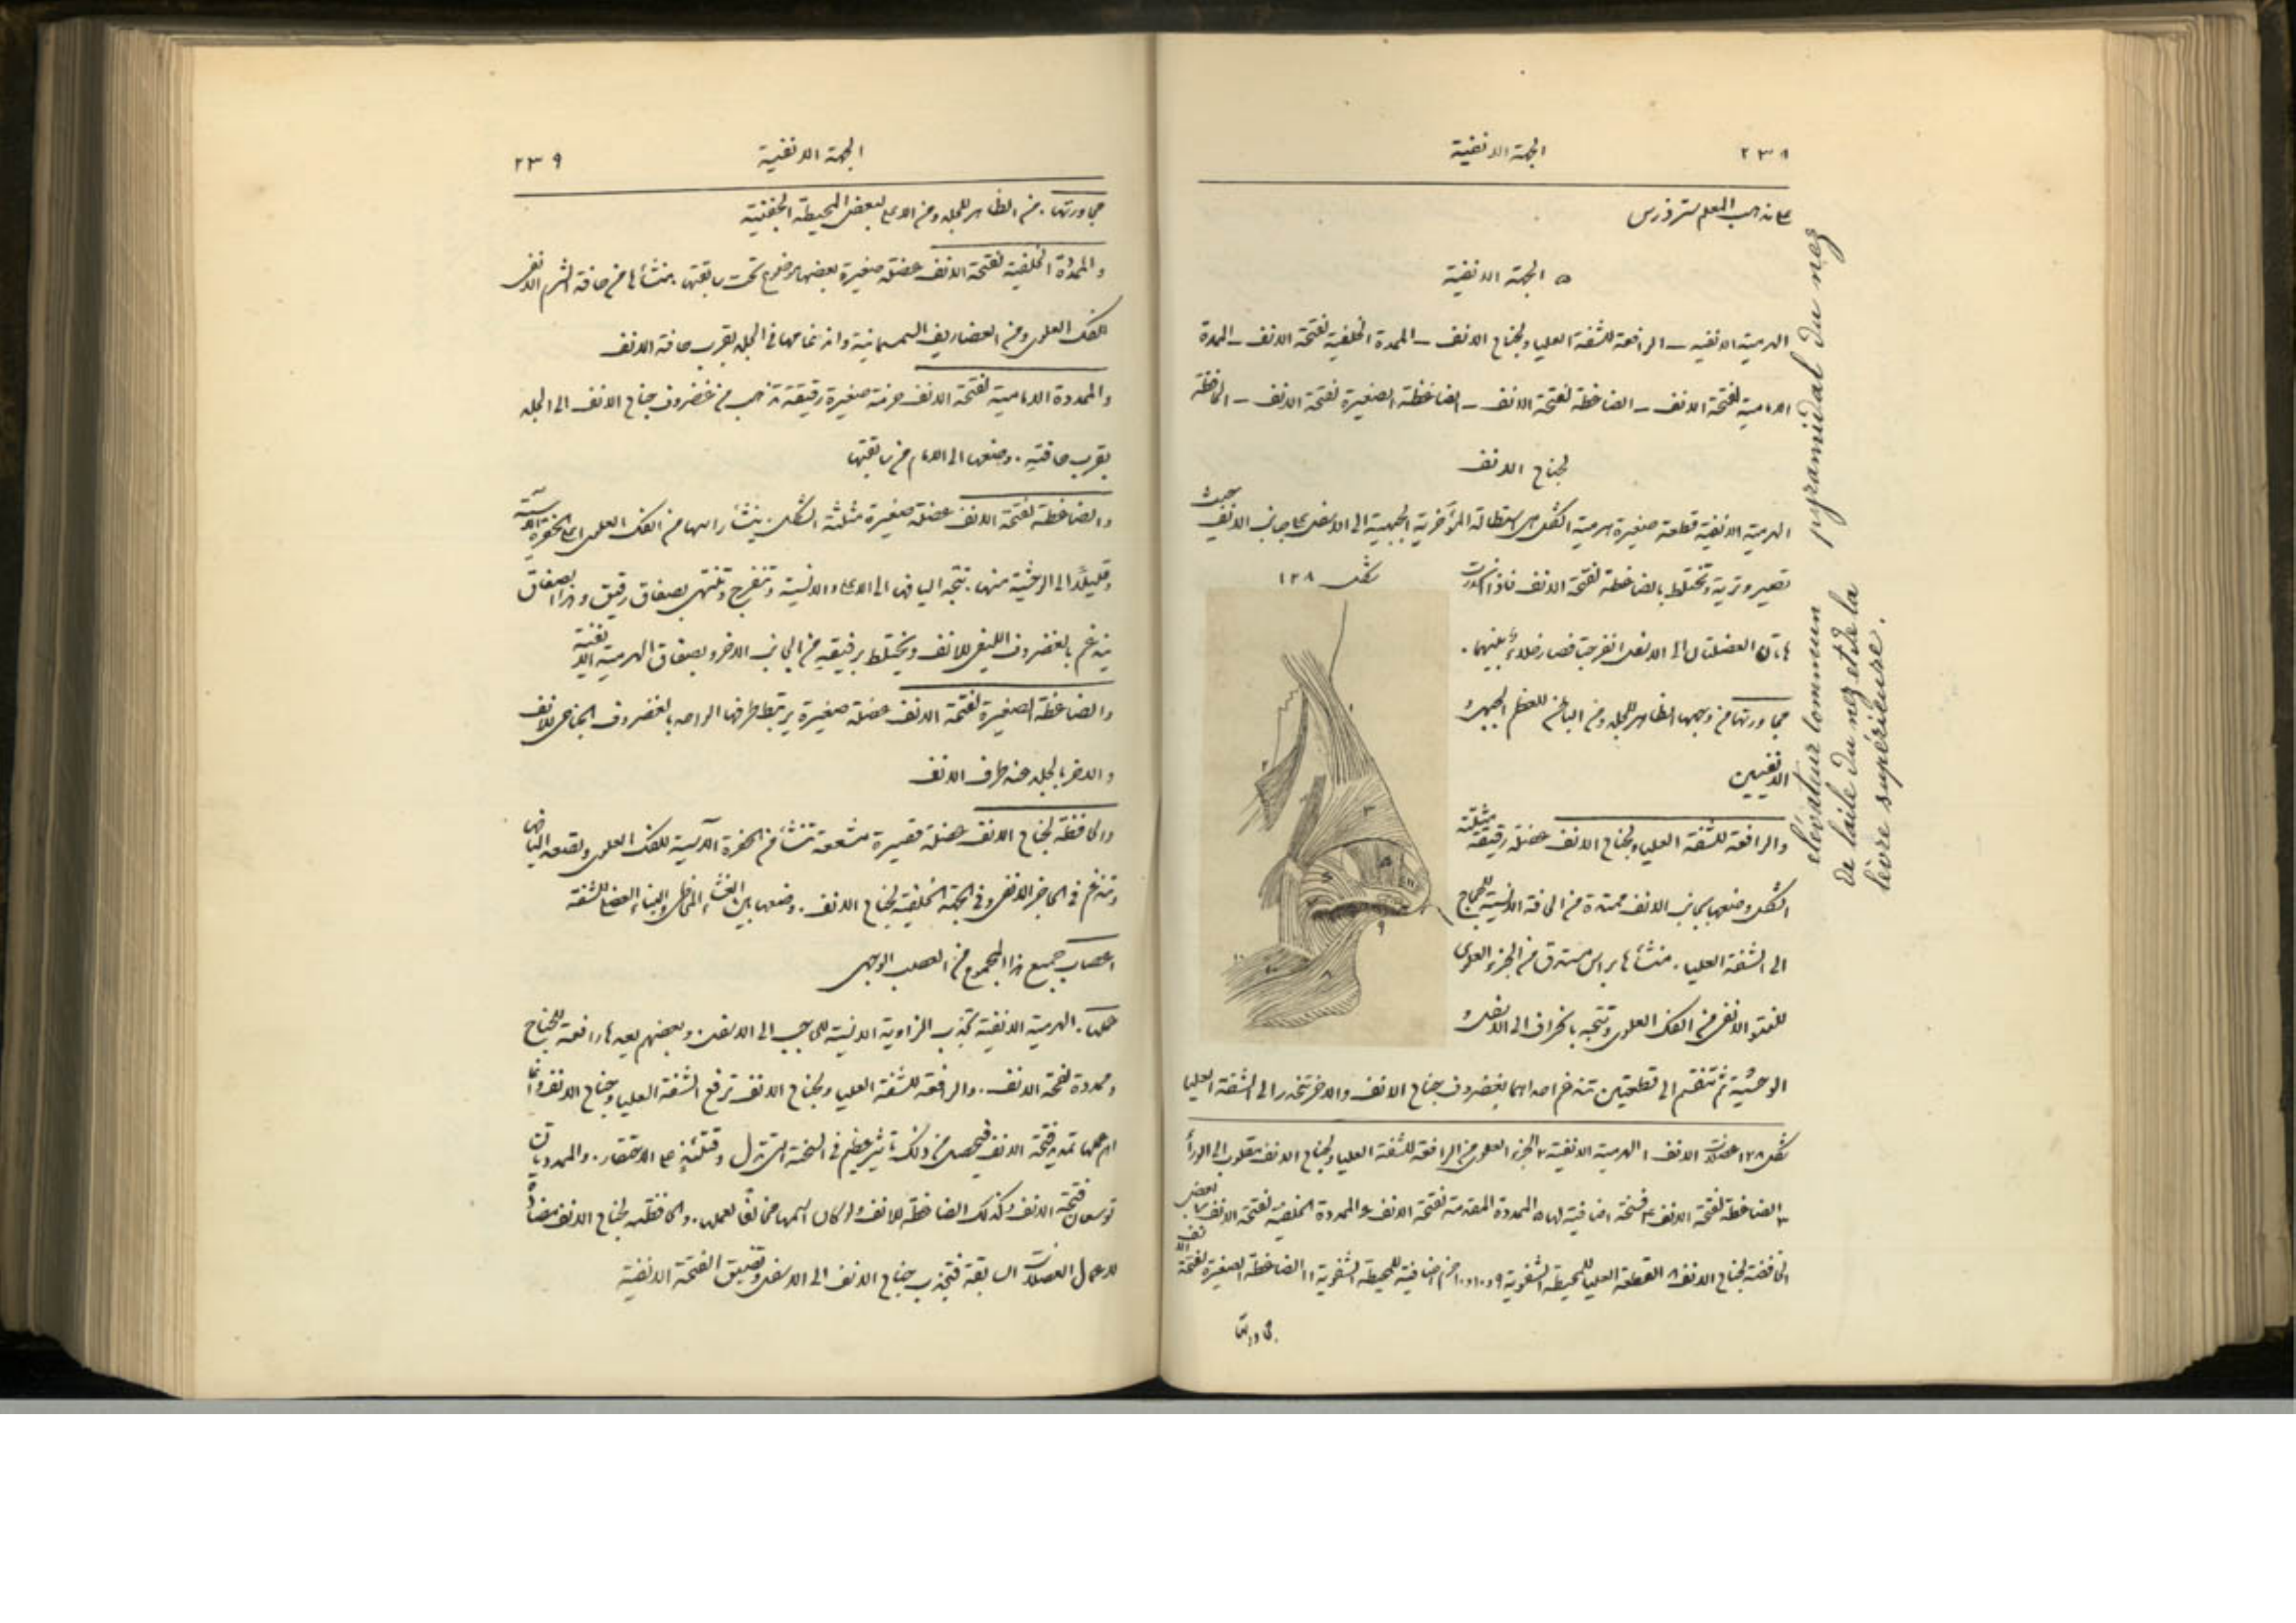 ٢٣٨
الجهة الانفية
على مذهب المعلم سترذرس
٥ الجهة الانفية
الهرمية الانفية – الرافعة للشفة العليا ولجناح الانف – الممددة الخلفية لفتحة الانف – الممددة
الامامية لفتحة الانف – الضاغطة لفتحة الانف – الضاغطة الصغيرة لفتحة الانف – الخافضة
لجناح الانف
الهرمية الانفية قطعة صغيرة هرمية الشكل هي استطالة المؤخرية الجبهية الى الاسفل على جانب الانف حيث
تصير وترية وتختلط بالضاغطة لفتحة الانف فاذا
هاتان العضلتان الى الاسفل انفرجتا فصار خلاء بينهما.
مجاورتها من وجهها الظاهر للجلد ومن الباطن للعظم الجبهي و
الانفيين
والرافعة للشفة العليا ولجناح الانف عضلة رقيقة مثلثة
الشكل وضعها بجانب الانف ممتدة من الحافة الانسية للحجاج
الى الشفة العليا. منشأها براس مستدق من الجزء العلوي
للنتو الانفي من الفك العلوي وتتجه بانحراف الى الاسفل و
الوحشية ثم تنقسم الى قطعتين تندغم احداهما بغضروف جناح الانف والاخرى تنحدر الى الشفة العليا
شكل ١٢٨
شكل ١٢٨ عضلات الانف ١ الهرمية الانفية ٢ الجزء العلوي من الرافعة للشفة العليا ولجناح الانف مقلوب الى الوراء
٣ الضاغطة لفتحة الانف ٤ فسخة اضافية لها ٥ الممددة المقدمة لفتحة الانف ٦ الممددة الخلفية لفتحة الانف ٧ بعض
الخافضة لجناح الانف ٨ القطعة العليا للمحيطة الشفوية ٩ و١٠ و١٠ حزم اضافية للمحيطة الشفوية ١١ الضاغطة الصغيرة لفتحة الانف
مجاورتها
pyramidal du nez
élévateur commun
de l'aile du nez et de la
lèvre supérieure.
الجهة الانفية
٢٣٩
مجاورتها. من الظاهر للجلد ومن الاعلى لبعض المحيطة الجفنية
والممددة الخلفية لفتحة الانف عضلة صغيرة بعضها موضوع تحت سابقتها. منشأها من حافة الشرم الانفي
للفك العلوي ومن الغضاريف السمسمانية واندغامها في الجلد بقرب حافة الانف
والممددة الامامية لفتحة الانف حزمة صغيرة رقيقة تذهب من غضروف جناح الانف الى الجلد
بقرب حافته. وضعها الى الامام من سابقتها
والضاغطة لفتحة الانف عضلة صغيرة مثلثة الشكل. ينشأ راسها من الفك العلوي اعلى الحفرة الآسية
وقليلًا الى الوحشية منها. تتجه اليافها الى الاعلى والانسية وتنفرج وتنتهي بصفاق رقيق وهذا الصفاق
يندغم بالغضروف الليفي للانف ويختلط برفيقه من الجانب الاخر وبصفاق الهرمية الانفية
والضاغطة الصغيرة لفتحة الانف عضلة صغيرة يرتبط طرفها الواحد بالغضروف الجناحي للانف
والاخر بالجلد عند طرف الانف
والخافضة لجناح الانف عضلة قصيرة متشععة تنشأ من الحفرة الآسية للفك العلوي وتصعد اليافها
وتندغم في الحاجز الانفي وفي الجهة الخلفية لجناح الانف. وضعها بين الغشاء المخاطي والبناء العضلي للشفة
اعصاب جميع هذا المجموع من العصب الوجهي
عملها. الهرمية الانفية تجذب الزاوية الانسية للحاجب الى الاسفل. وبعضهم يعدها رافعة للجناح
وممددة لفتحة الانف. والرافعة للشفة العليا ولجناح الانف ترفع الشفة العليا وجناح الانف وانما
اهم عملها تمديد فتحة الانف فيحصل من ذلك تاثير عظيم في السحنة الى الاحتقار. والممددتان
توسعان فتحة الانف وكذلك الضاغطة للانف ولو كان اسمها مخالفًا لعملها. والخافضة لجناح الانف مضادة
لاعمال العضلات السابقة فتجذب جناح الانف الى الاسفل وتضيق الفتحة الانفية